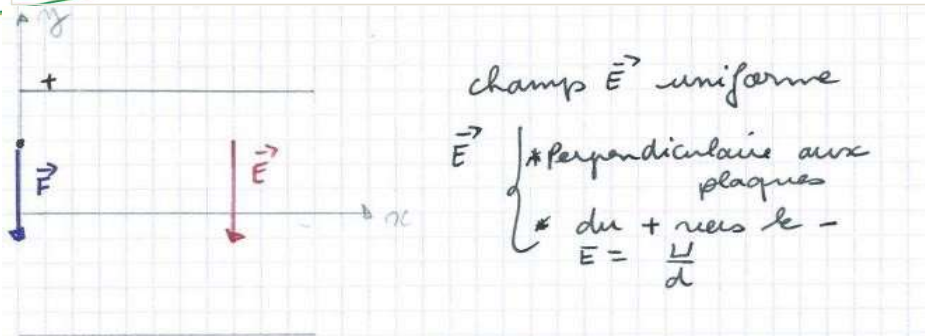 y
+
F⃗
E⃗
x
champ E⃗ uniforme
E⃗ { * Perpendiculaire aux
plaques
* du + vers le -
E = U/d